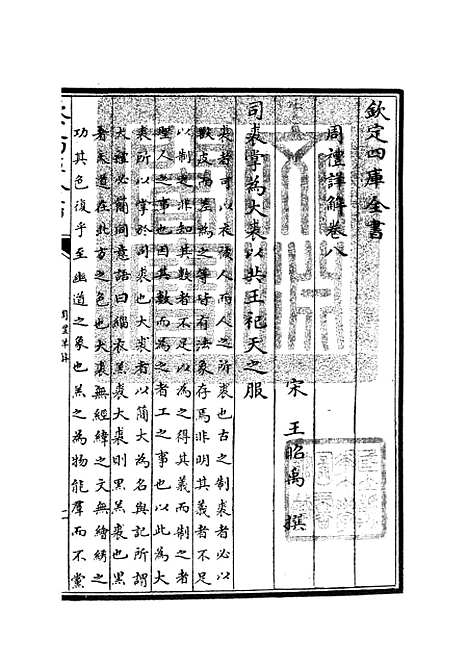 欽定四庫全書
周禮詳解卷八
宋 王昭禹 撰
司裘掌為大裘以共王祀天之服
裘者可以衣被人而人之所裘也古之制裘者必以
獸皮而差為之等皆有法象存焉非明其義者不足
以制之非知其數者不足以為之得其義而制之者
理人之事也因其數而為之者工之事也以此為大
裘所以掌於司裘也大裘者以簡大為名與記所謂
大禮必簡同意語曰緇衣羔裘大裘則黑羔裘也黑
者天道在北方之色也大裘無經緯之文無繪繡之
功其色復乎至幽道之象也羔之為物能羣而不黨
周禮詳解